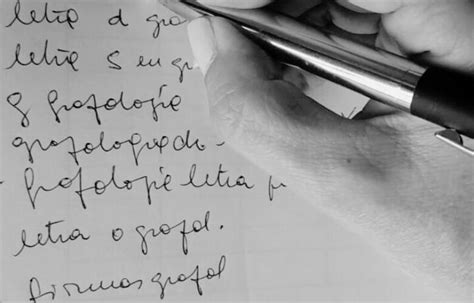 letra d gra
letra S en gr
g grafología
grafologia do-
- grafología letra p
letra o grafol.
firmas grafol